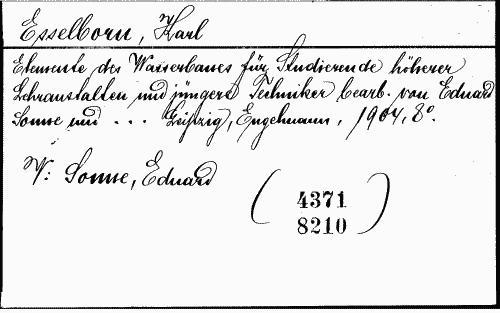 Esselborn, Karl
Elemente des Wasserbaues für Studierende höherer
Lehranstalten und jüngere Techniker bearb. von Eduard
Sonne und ... Leipzig, Engelmann, 1904, 8°.
V: Sonne, Eduard
(4371
8210)